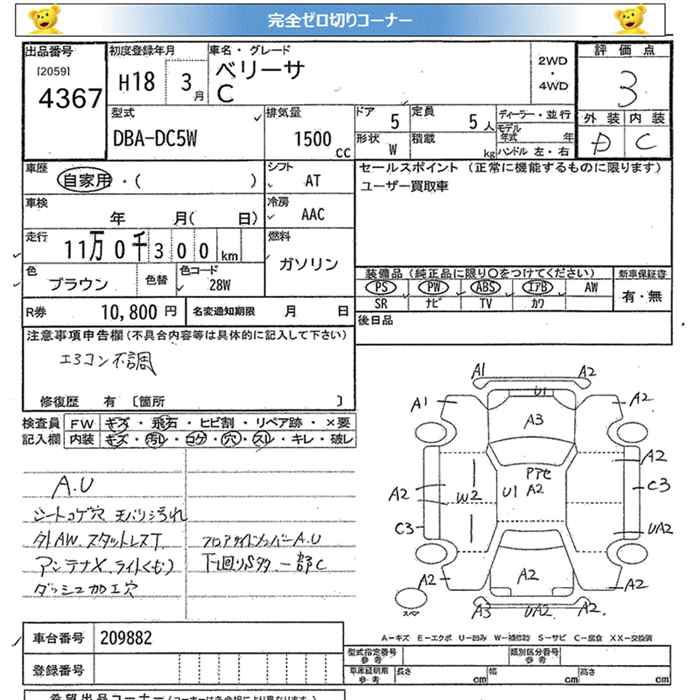 完全ゼロ切りコーナー
出品番号 初度登録年月 車名・グレード 評価点
[2059] 4367 H18 3月 ベリーサ C 2WD・4WD 3
型式 排気量 ドア 5 定員 5人 ディーラー・並行 外装 内装
DBA-DC5W 1500cc 形状 W 積載 kg モデル年式 年 ハンドル 左・右 D C
車歴 シフト セールスポイント (正常に機能するものに限ります)
自家用・( ) AT ユーザー買取車
車検 冷房
年 月( 日) AAC
走行 燃料
11万0千300km ガソリン
色 色替 色コード 装備品(純正品に限り○をつけてください) 新車保証書
ブラウン 28W PS PW ABS エアB AW 有・無
SR ナビ TV カワ
R券 10,800円 名変通知期限 月 日 後日品
注意事項申告欄(不具合内容等は具体的に記入して下さい)
エアコン不調
修復歴 有 〔箇所 〕
検査員 FW キズ・飛石・ヒビ割・リペア跡・×要
記入欄 内装 キズ・汚れ・コゲ・穴・スレ・キレ・破レ
A.U
シートコゲ穴 天バリ汚れ
外AW.スタットレスT. フロアサイドメンバーA.U
アンテナX.ライトくもり 下回りSタタ 一部C
ダッシュ加工穴
A1 A2
A1 U1 A2
A3
A2
Pアセ
A2 W2 U1 A2 C3
C3 UA2
A2 A2 A2
スペア A3 UA2 A2.
A—キズ E—エクボ U—凹み W—補修跡 S—サビ C—腐食 XX—交換済
車台番号 209882 型式指定番号 参考 類別区分番号 参考
登録番号 車庫証明用 参考 長さ cm 幅 cm 高さ cm
希望出品コーナー